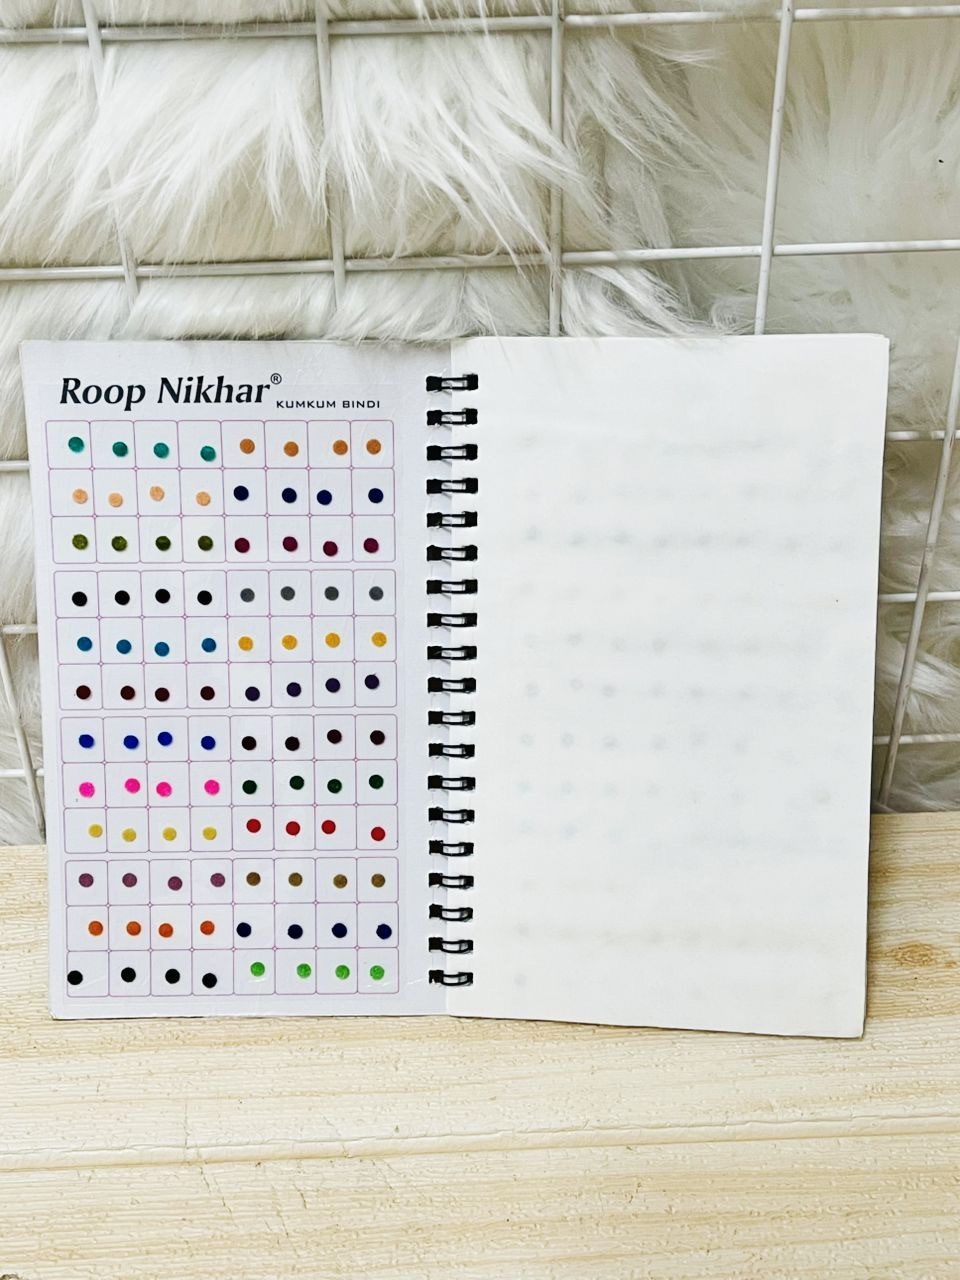 Roop Nikhar®
KUMKUM BINDI